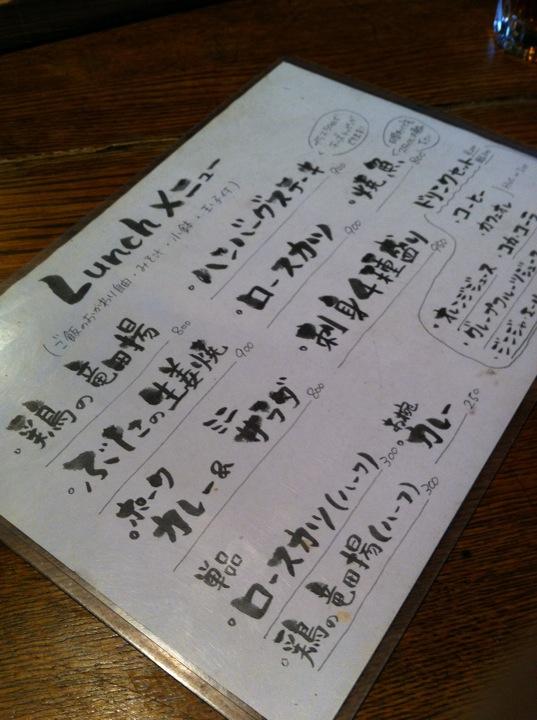 Lunch メニュー
(ご飯のおかわり自由・みそ汁・小鉢・玉子付)
鶏の竜田揚 800
ぶたの生姜焼 900
ポーク カレー & ミニ サラダ 800
ハンバーグステーキ 900
ロースカツ 900
刺身4種盛り 950
焼魚 800
ドリンクセット
・コーヒー
・カフェオレ
・コカコーラ
・オレンジジュース
・グレープフルーツジュース
・ジンジャエール
単品
ロースカツ(ハーフ) 300
鶏の竜田揚(ハーフ) 300
お椀 カレー 250